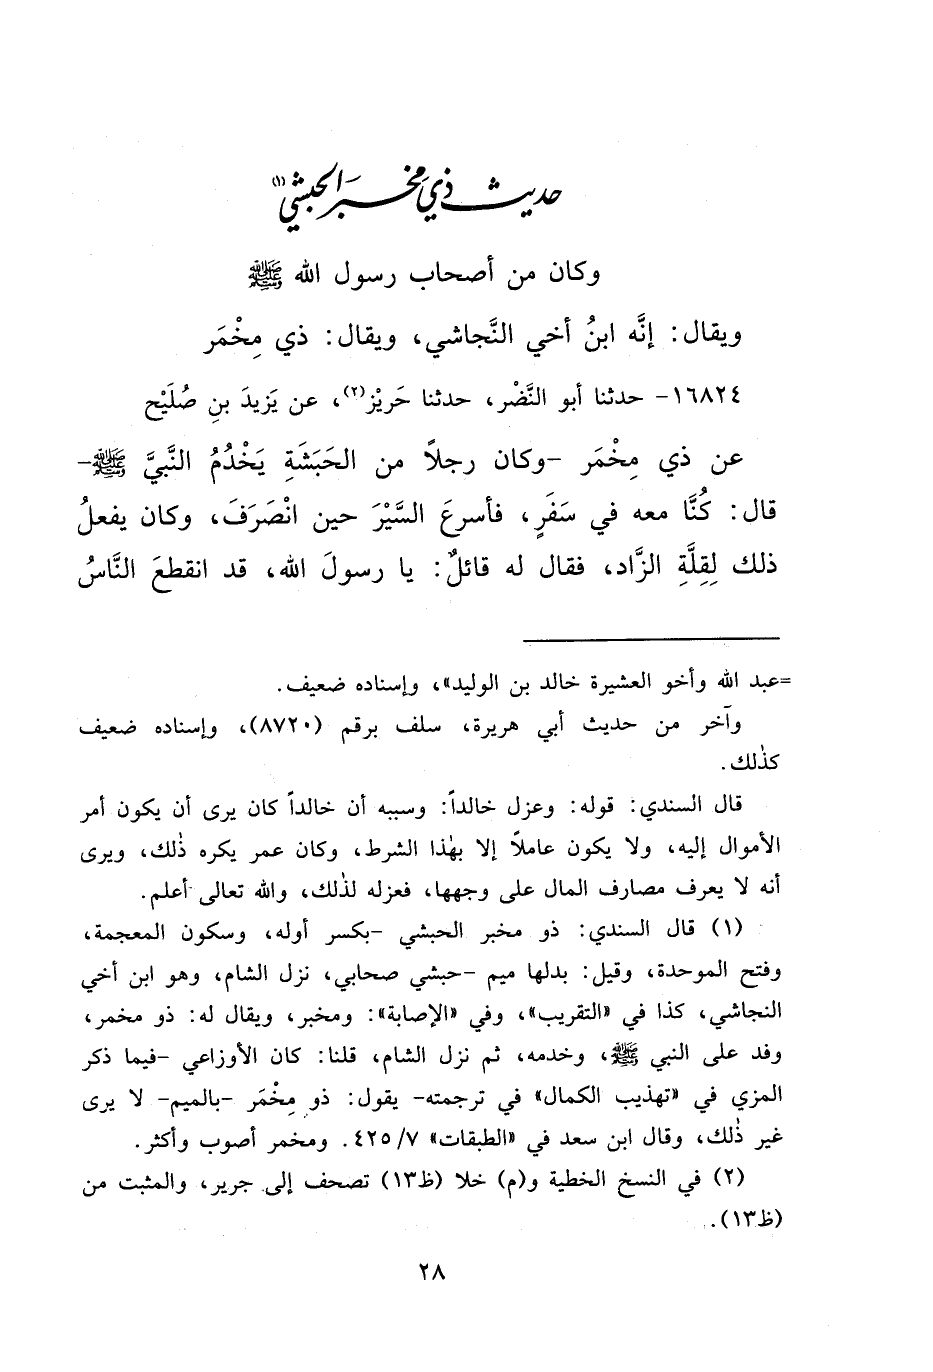 حديث ذي مخبر الحبشي(١)
وكان من أصحاب رسول الله ﷺ
ويقال: إنَّه ابنُ أخي النَّجاشي، ويقال: ذي مِخْمَر
١٦٨٢٤- حدثنا أبو النَّضْر، حدثنا حَرِيْز(٢)، عن يَزِيدَ بنِ صُلَيْح
عن ذي مِخْمَر -وكان رجلاً من الحَبَشَةِ يَخْدُمُ النبيَّ ﷺ-
قال: كُنَّا معه في سَفَرٍ، فأسرعَ السَّيْرَ حين انْصَرَفَ، وكان يفعلُ
ذلك لِقِلَّةِ الزَّاد، فقال له قائلٌ: يا رسولَ الله، قد انقطعَ النَّاسُ
=عبد الله وأخو العشيرة خالد بن الوليد»، وإسناده ضعيف.
وآخر من حديث أبي هريرة، سلف برقم (٨٧٢٠)، وإسناده ضعيف
كذٰلك.
قال السندي: قوله: وعزل خالداً: وسببه أن خالداً كان يرى أن يكون أمر
الأموال إليه، ولا يكون عاملاً إلا بهٰذا الشرط، وكان عمر يكره ذٰلك، ويرى
أنه لا يعرف مصارف المال على وجهها، فعزله لذٰلك، والله تعالى أعلم.
(١) قال السندي: ذو مخبر الحبشي -بكسر أوله، وسكون المعجمة،
وفتح الموحدة، وقيل: بدلها ميم -حبشي صحابي، نزل الشام، وهو ابن أخي
النجاشي، كذا في «التقريب»، وفي «الإصابة»: ومخبر، ويقال له: ذو مخمر،
وفد على النبي ﷺ، وخدمه، ثم نزل الشام، قلنا: كان الأوزاعي -فيما ذكر
المزي في «تهذيب الكمال» في ترجمته- يقول: ذو مِخْمَر -بالميم- لا يرى
غير ذٰلك، وقال ابن سعد في «الطبقات» ٤٢٥/٧. ومخمر أصوب وأكثر.
(٢) في النسخ الخطية و(م) خلا (ظ١٣) تصحف إلى جرير، والمثبت من
(ظ١٣).
٢٨